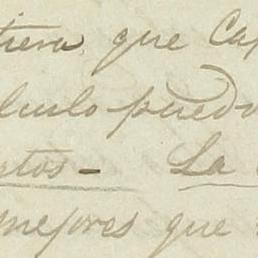 tiera que Cap
lculo puedo
ntos - La
mejores que